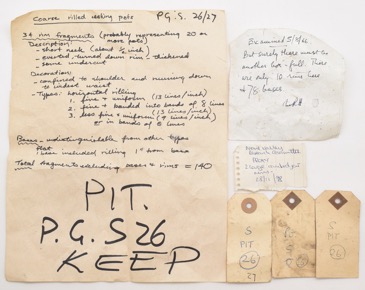 Coarse rilled cooking pots P.G.S. 26/27
34 rim fragments (probably representing 20 or
more pots)
Description:
- short neck (about ½ inch)
- everted, turned down rim - thickened
some undercut
Decoration:
- confined to shoulder and running down
to widest waist
- Types: horizontal rilling
1. fine & uniform (13 lines/inch)
2. fine & banded into bands of 8 lines
(13 lines/inch)
3. less fine & uniform (9 lines/inch)
or in bands of 8 lines
Bases - indistinguishable from other types
flat
1 base included rilling 1" from base
Total fragments excluding bases & rims = 140
PIT.
P.G.S 26
KEEP
Examined 5/10/66
But surely there must be
another box-full. There
are only 10 rims here
& 7 bases
S
PIT
26
27
S
S
PIT
26